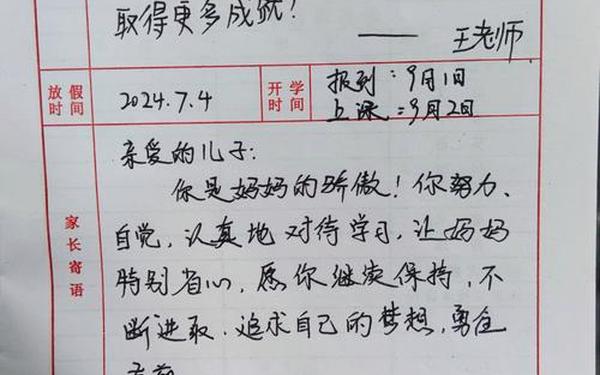 取得更多成就!
—— 王老师
放假时间 2024.7.4 开学时间 报到:9月1日
上课:9月2日
家长寄语
亲爱的儿子:
你是妈妈的骄傲!你努力、
自觉,认真地对待学习,让妈妈
特别省心,愿你继续保持,不
断进取.追求自己的梦想,勇